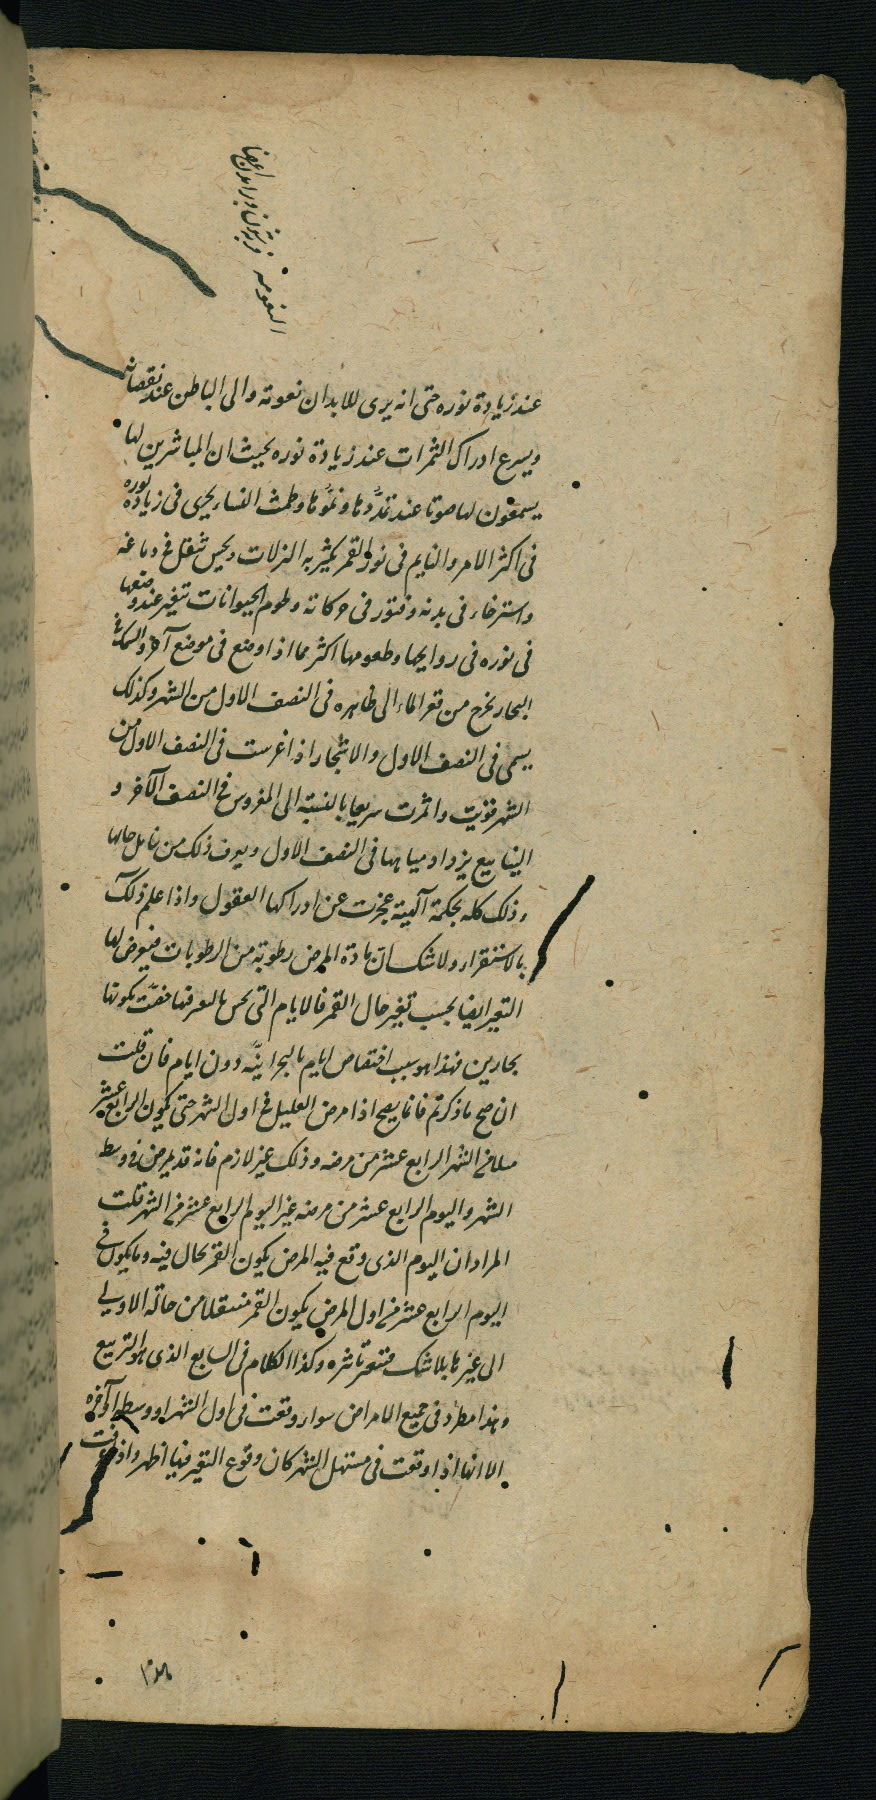 النعومة
عند زيادة نوره حتى انه يرى للابدان نعومة والى الباطن عند نقصانه
ويسرع ادراك الثمرات عند زيادة نوره بحيث ان المباشرين لها
يسمعون لها صوتا عند تمدّدها ونموّها وطمث النساء يجرى فى زيادة نوره
فى اكثر الامر والنايم فى نور القمر يكثر به النزلات ويحس بثقل فى دماغه
واسترخاء فى بدنه وفتور فى حركاته ولحوم الحيوانات تتغير عند وضعها
فى نوره فى روايحها وطعومها اكثر مما اذا وضع فى موضع آخر والسمك فى
البحار يخرج من قعر الماء الى ظاهره فى النصف الاول من الشهر وكذلك
يسمى فى النصف الاول والاشجار اذا غرست فى النصف الاول من
الشهر قويت واثمرت سريعا بالنسبة الى المغروس فى النصف الآخر و
الينابيع يزداد مياهها فى النصف الاول ويعرف ذلك من تامل حالها
وذلك كله بحكمة آلهية عجزت عن ادراكها العقول واذا علم ذلك
بالاستقراء ولا شك ان مادة المرض رطوبة من الرطوبات فيعرض لها
التغير ايضا بحسب تغير حال القمر فالايام التى بكونها
بحارين فهذا هو سبب اختصاص ايام بالبحرانيّة دون ايام فان قلت
ان صح ما ذكرتم فانما يصح اذا مرض العليل فى اول الشهر حتى يكون الرابع عشر
مثلا فى الشهر الرابع عشر من مرضه وذلك غير لازم فانه قد يمرض فى وسط
الشهر واليوم الرابع عشر من مرضه غير اليوم الرابع عشر فى الشهر قلت
المراد ان اليوم الذى وقع فيه المرض يكون القمر بحال فيه وما يكون فى
اليوم الرابع عشر فى اول المرض يكون القمر منتقلا من حالة الاولى
الى غيرها بلا شك فتغير تاثيره وكذا الكلام فى السابع الذى هو التربيع
وهذا مطرد فى جميع الامراض سواء وقعت فى اول الشهر او وسطه او آخره
الا انها اذا وقعت فى مستهل الشهر كان وقوع التغير فيها اظهر واذا وقعت